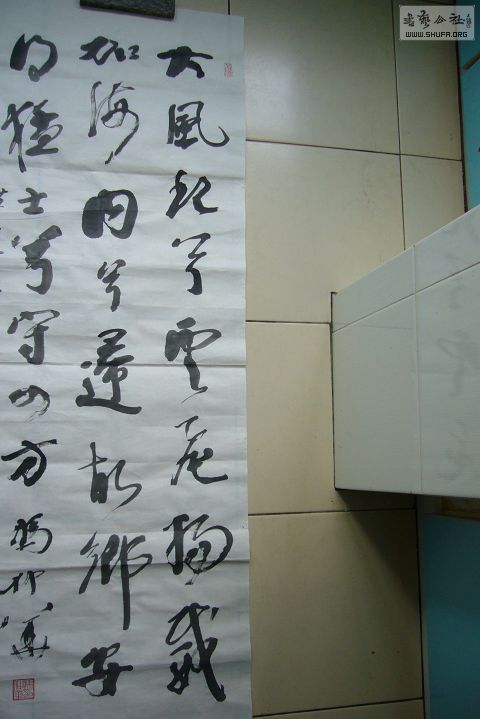 大風起兮雲飛揚威
加海内兮還故鄉安
得猛士兮守四方
書藝公社
WWW.SHUFA.ORG